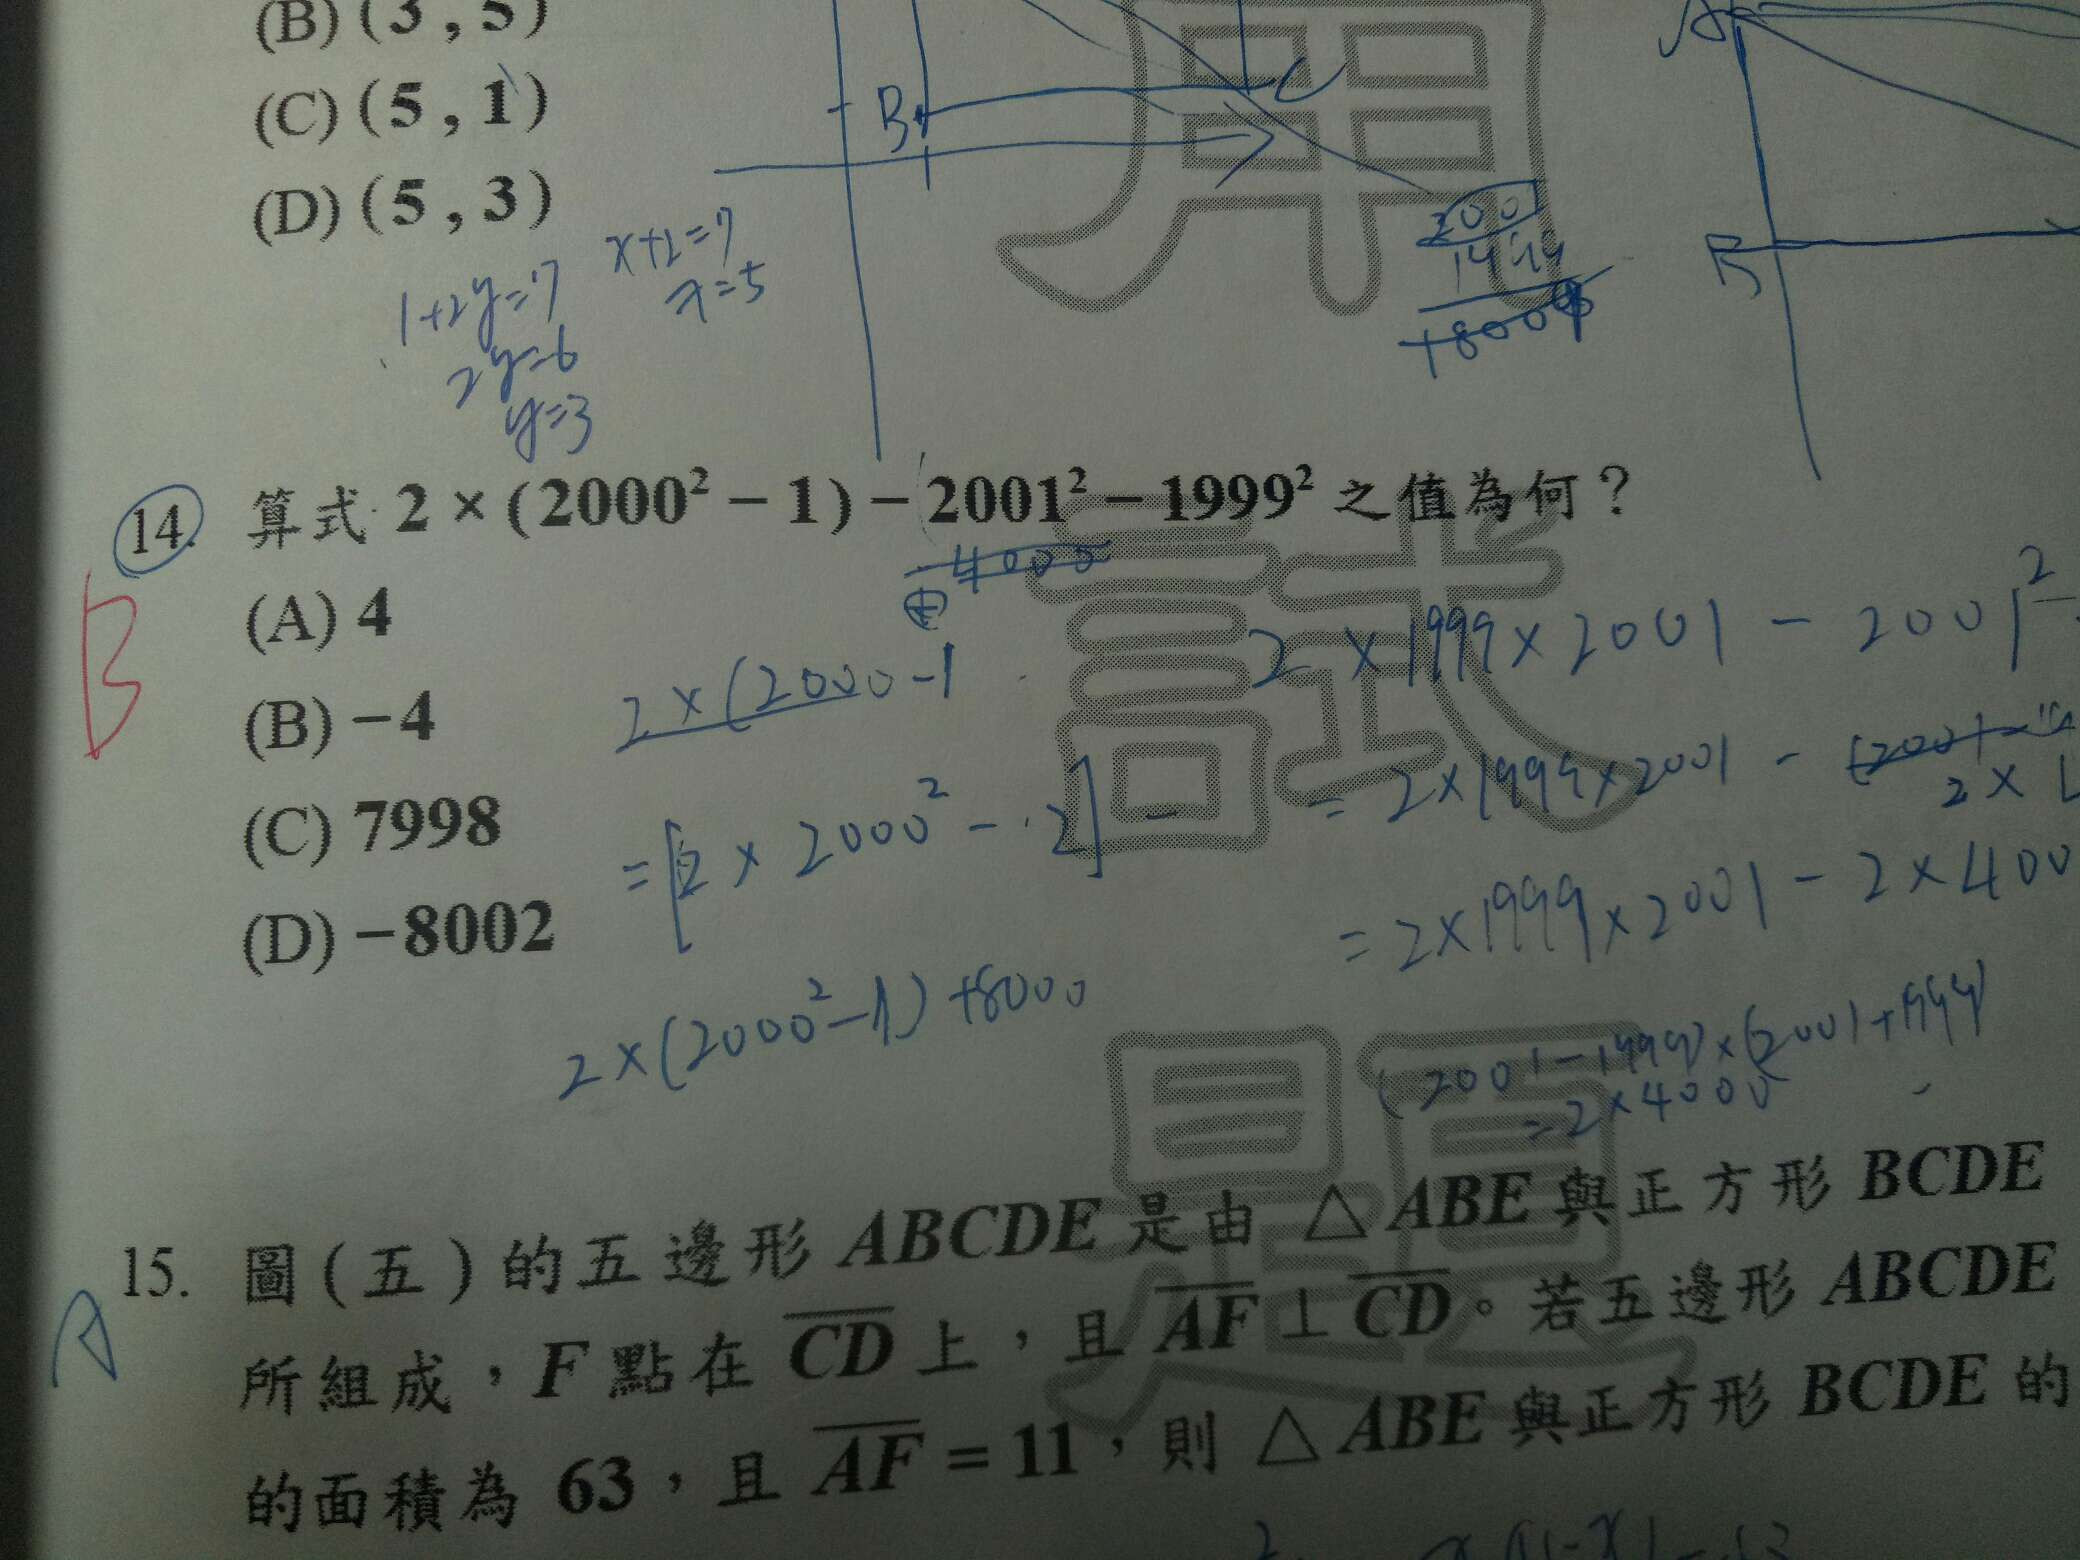 (B) (3 , 5)
(C) (5 , 1)
(D) (5 , 3)
B
C
A
B
1+2y=7
2y=6
y=3
x+2=7
x=5
2001
1999
+800
14. 算式 2 × (2000² − 1) − 2001² − 1999² 之值為何？
4000
(A) 4
(B) −4
(C) 7998
(D) −8002
B
2×(2000-1
=[2×2000²-2]-
2×(2000²-1)+8000
2×1999×2001-2001²
=2×1999×2001-(2001-
2×
=2×1999×2001-2×400
(2001-1999)×(2001+1999)
=2×4000
試
15. 圖(五)的五邊形 ABCDE 是由 △ABE 與正方形 BCDE
所組成，F 點在 CD 上，且 AF ⊥ CD。若五邊形 ABCDE
的面積為 63，且 AF = 11，則 △ABE 與正方形 BCDE 的
A